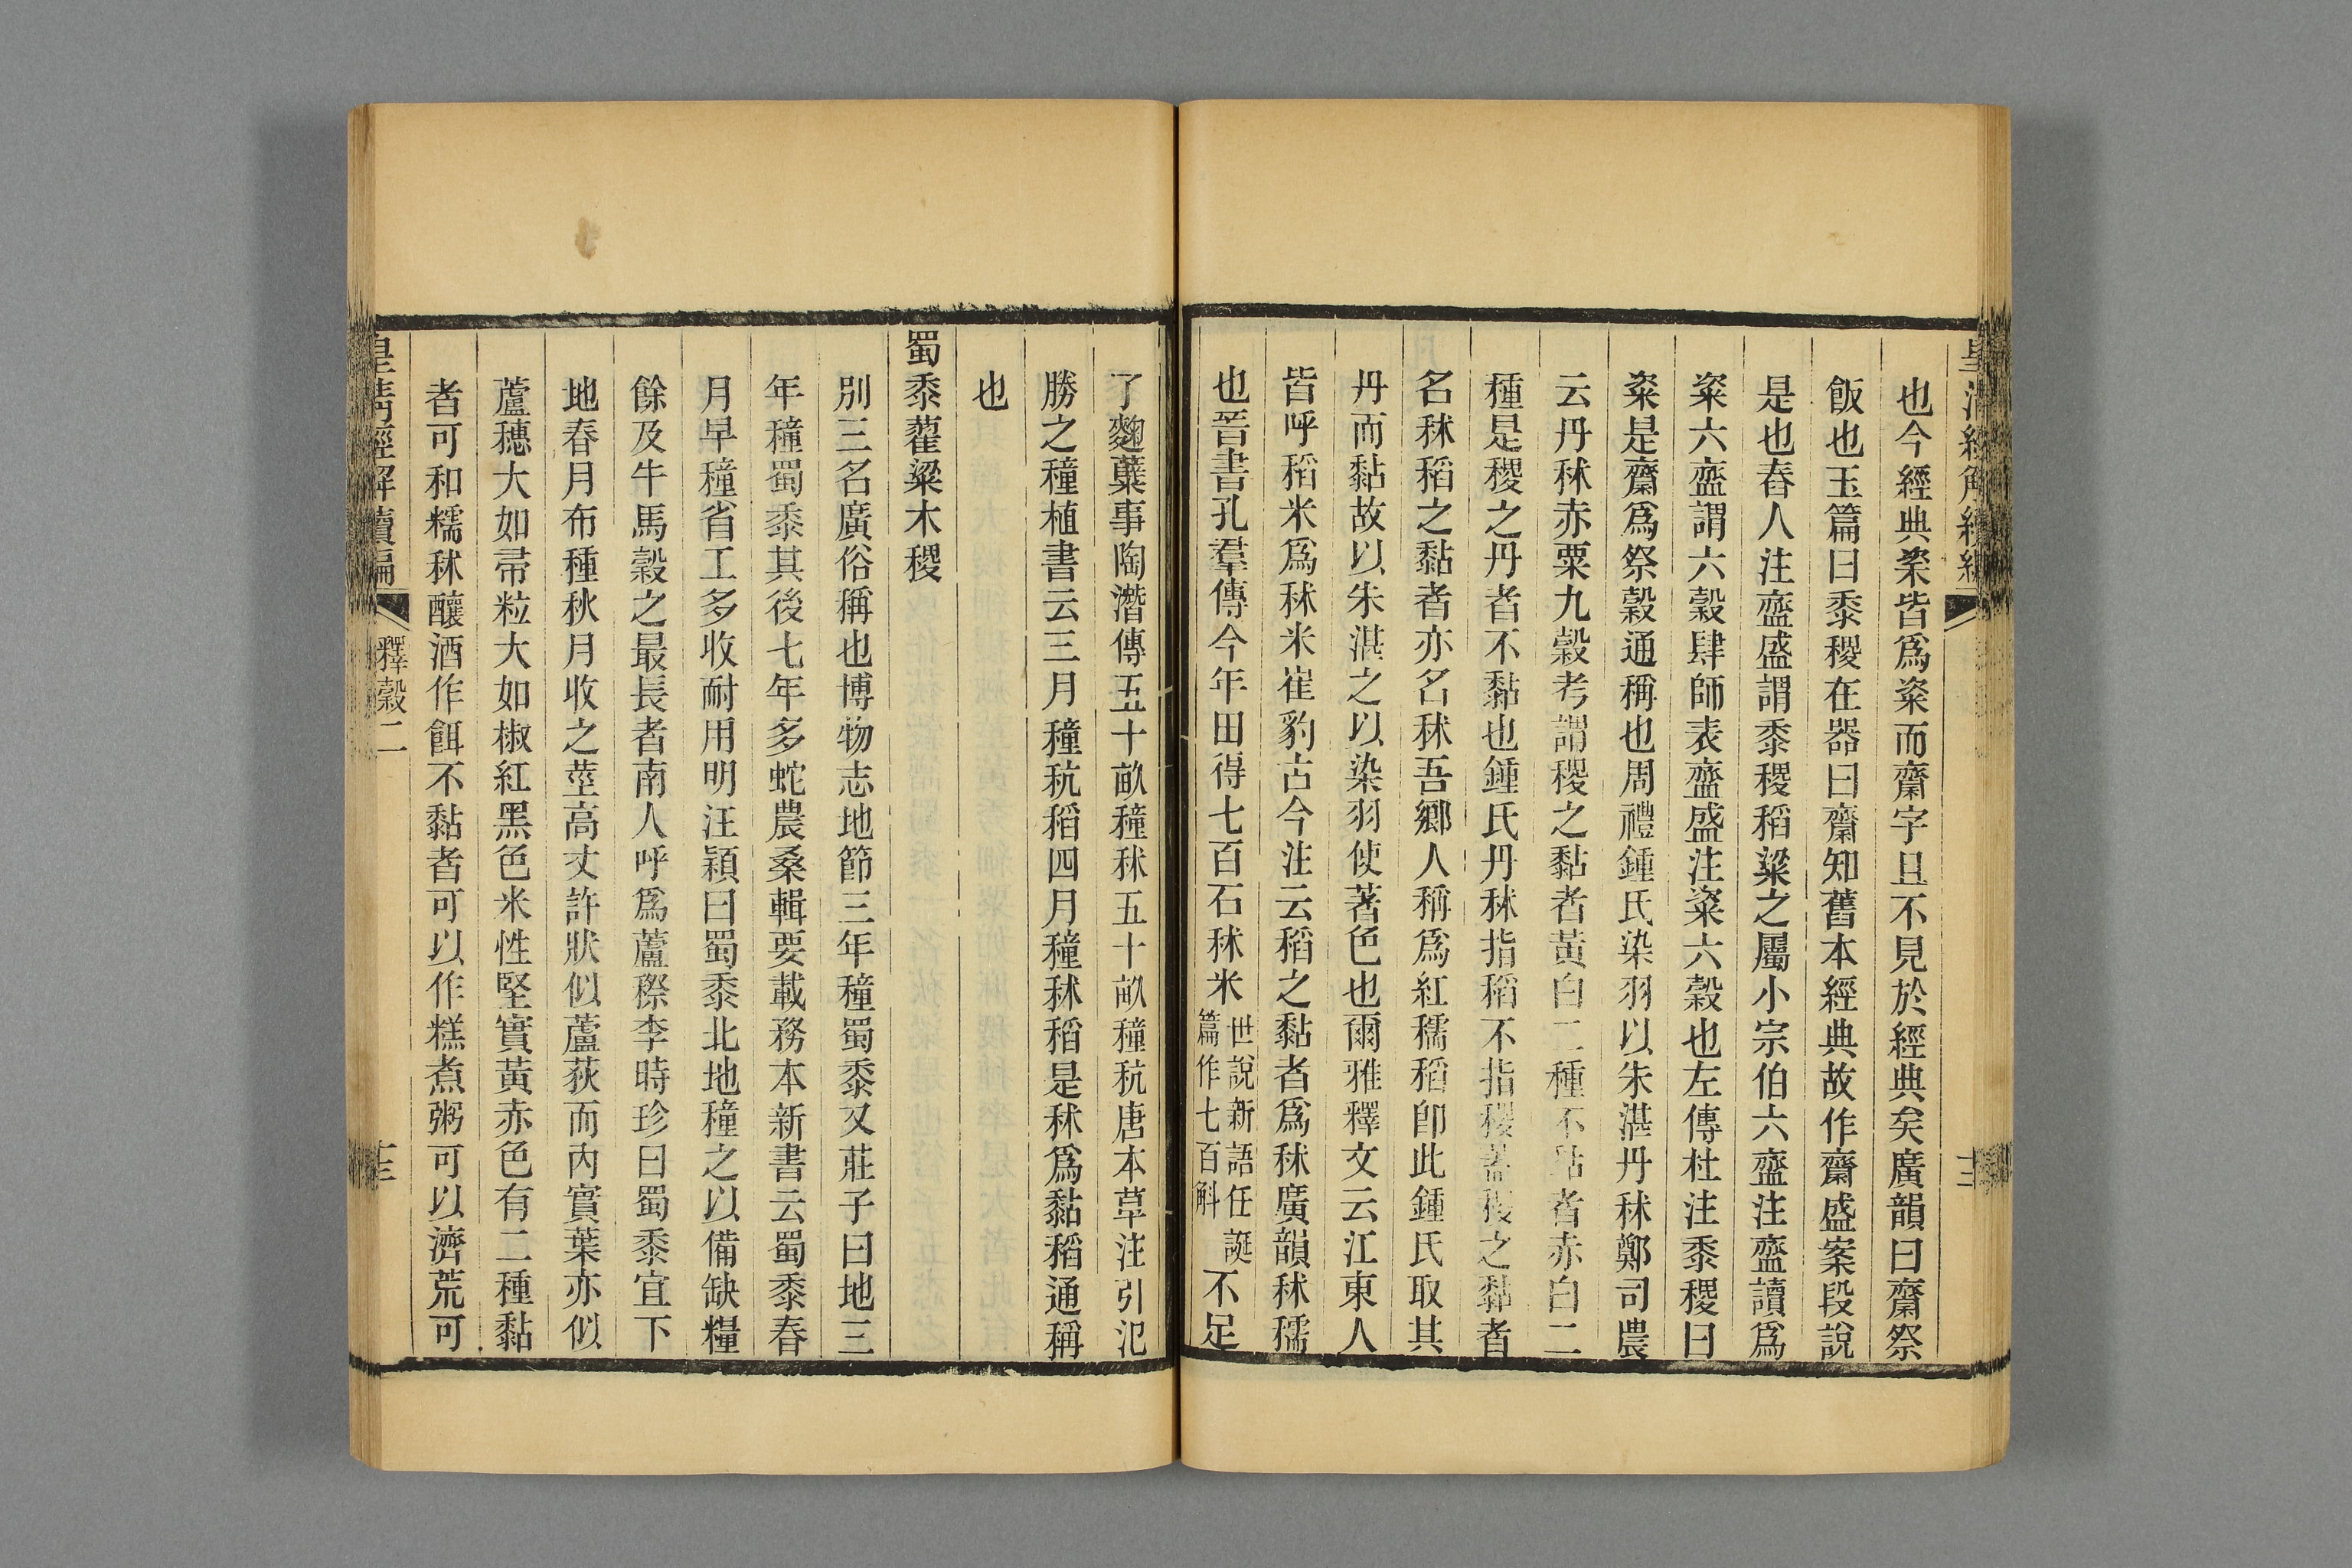 也今經典粢皆爲粢而齋字且不見於經典矣廣韻曰齋祭
飯也玉篇曰黍稷在器曰齋知舊本經典故作齋盛案段說
是也舂人注齍盛謂黍稷稻粱之屬小宗伯六齍注齍讀爲
粢六齍謂六穀肆師表齍盛注粢六穀也左傳杜注黍稷曰
粢是齋爲祭穀通稱也周禮鍾氏染羽以朱湛丹秫鄭司農
云丹秫赤粟九穀考謂稷之黏者黃白二種不黏者赤白二
種是稷之丹者不黏也鍾氏丹秫指稻不指稷蓋稷之黏者
名秫稻之黏者亦名秫吾鄉人稱爲紅穤稻卽此鍾氏取其
丹而黏故以朱湛之以染羽使著色也爾雅釋文云江東人
皆呼稻米爲秫米崔豹古今注云稻之黏者爲秫廣韻秫穤
也晉書孔羣傳今年田得七百石秫米世說新語任誕篇作七百斛不足
了麴蘖事陶潛傳五十畝穜秫五十畝穜秔唐本草注引氾
勝之穜植書云三月穜秔稻四月穜秫稻是秫爲黏稻通稱
也
蜀黍藋粱木稷
別三名廣俗稱也博物志地節三年穜蜀黍又莊子曰地三
年穜蜀黍其後七年多蛇農桑輯要載務本新書云蜀黍春
月早穜省工多收耐用明汪穎曰蜀黍北地穜之以備缺糧
餘及牛馬穀之最長者南人呼爲蘆穄李時珍曰蜀黍宜下
地春月布種秋月收之莖高丈許狀似蘆荻而內實葉亦似
蘆穗大如帚粒大如椒紅黑色米性堅實黃赤色有二種黏
者可和糯秫釀酒作餌不黏者可以作糕煮粥可以濟荒可
皇淸經解續編
釋穀二